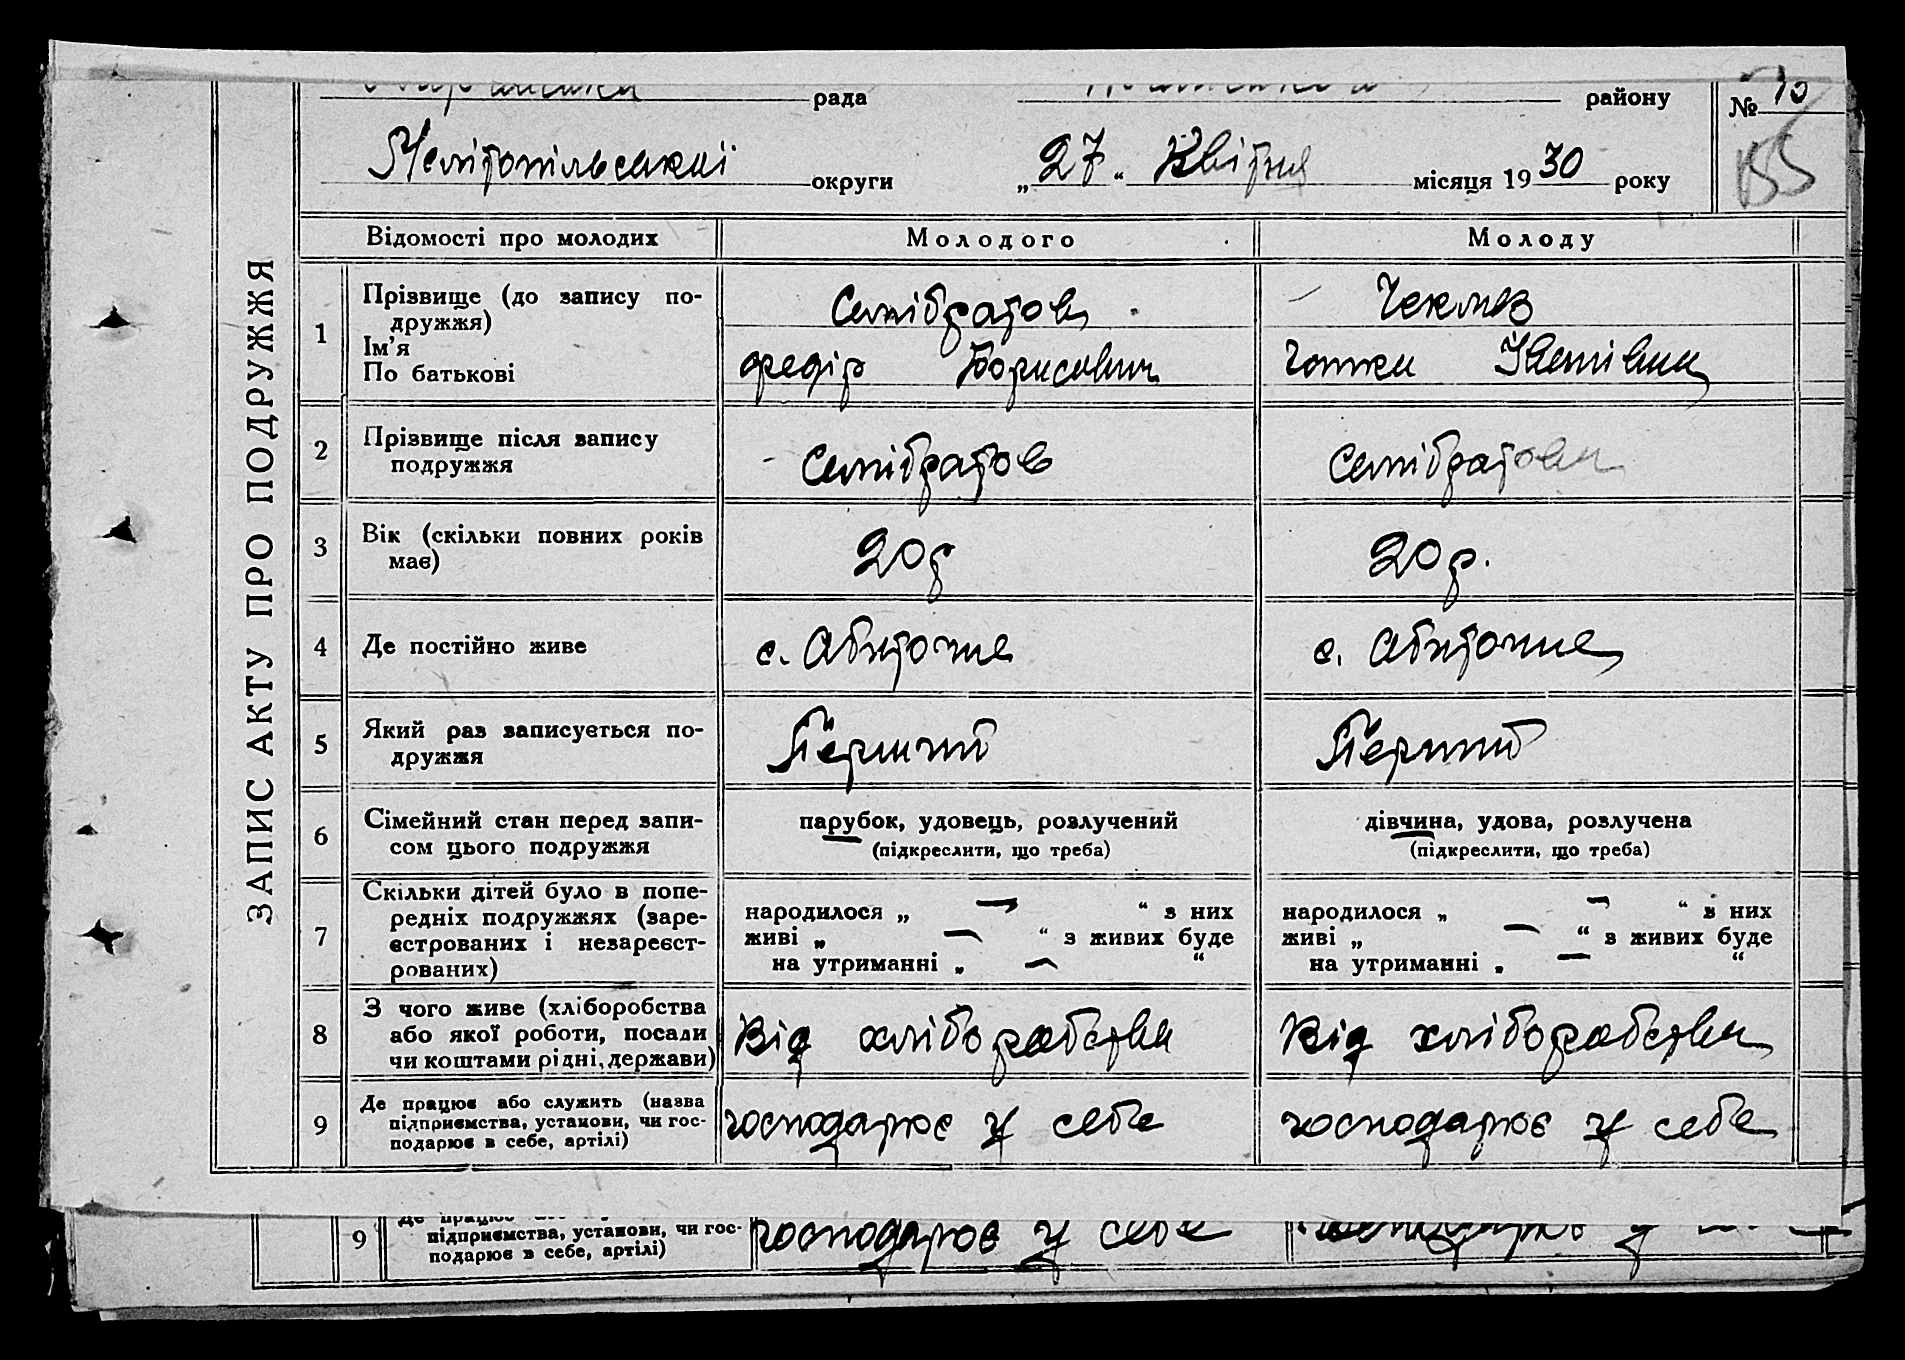 рада району № 10
Мелітопільської округи „27“ Квітня місяця 1930 року
155
ЗАПИС АКТУ ПРО ПОДРУЖЖЯ
Відомості про молодих Молодого Молоду
1 Прізвище (до запису по-
дружжя)
Ім'я
По батькові
Селібратов
федір Борисович
2 Прізвище після запису
подружжя
Селібратов
3 Вік (скільки повних років
має)
20 р
20 р.
4 Де постійно живе
с. Обиточне
с. Обиточне
5 Який раз записується по-
дружжя
Перший
Перший
6 Сімейний стан перед запи-
сом цього подружжя
парубок, удовець, розлучений
(підкреслити, що треба)
дівчина, удова, розлучена
(підкреслити, що треба)
7 Скільки дітей було в попе-
редніх подружжях (заре-
єстрованих і незареєст-
рованих)
народилося „ — “ з них
живі „ — “ з живих буде
на утриманні „ — “
народилося „ — “ з них
живі „ — “ з живих буде
на утриманні „ — “
8 З чого живе (хліборобства
або якої роботи, посади
чи коштами рідні, держави)
Від хліборобства
Від хліборобства
9 Де працює або служить (назва
підприємства, установи, чи гос-
подарює в себе, артілі)
господарює у себе
господарює у себе
9 підприємства, установи, чи гос-
подарює в себе, артілі)
господарює у себе